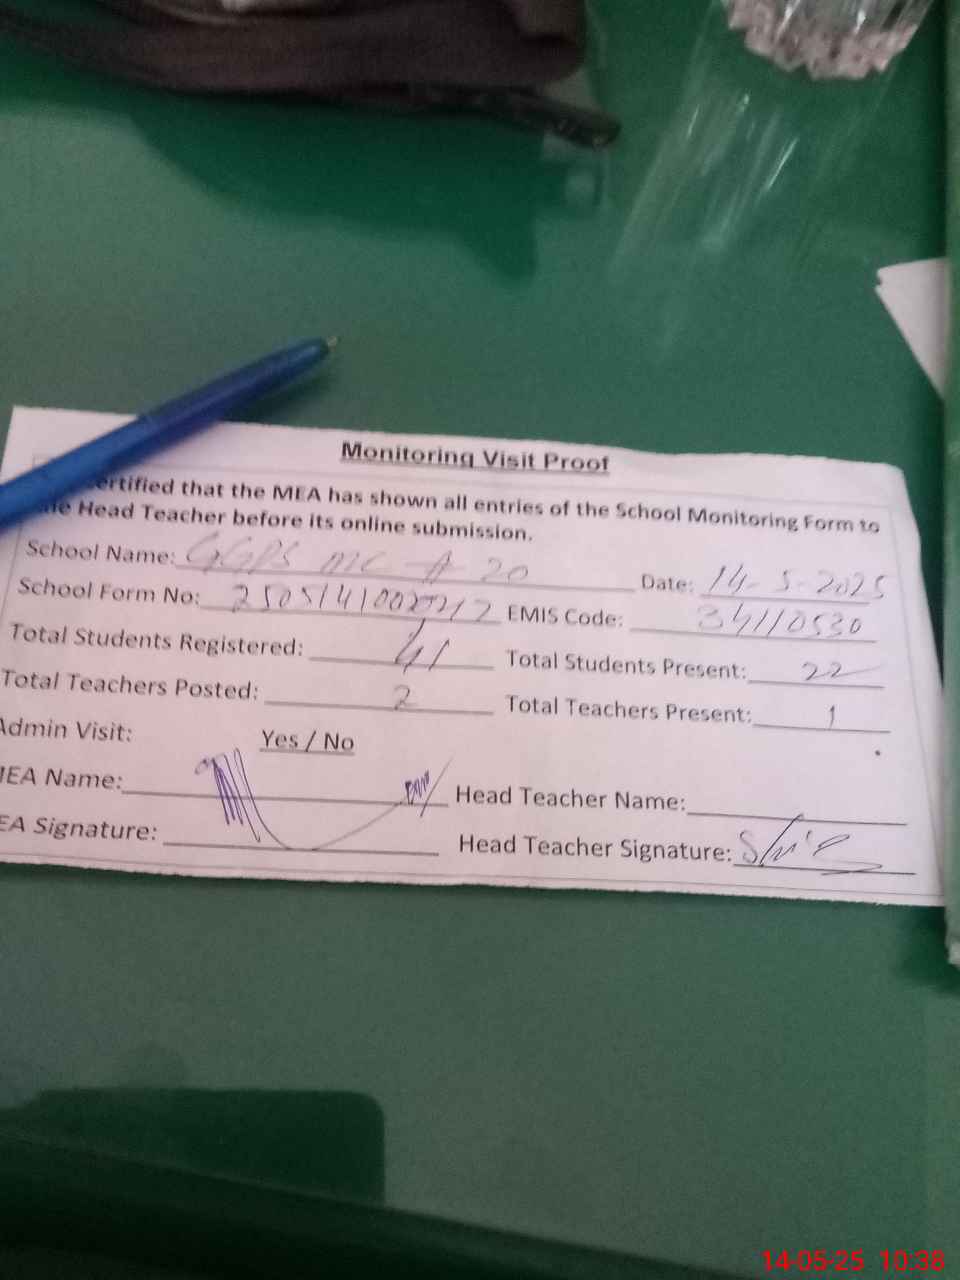 Monitoring Visit Proof
ertified that the MEA has shown all entries of the School Monitoring Form to
Head Teacher before its online submission.
School Name: GGPS MC A 20 Date: 14-5-2025
School Form No: EMIS Code: 34110530
Total Students Registered: 41 Total Students Present: 22
Total Teachers Posted: 2 Total Teachers Present: 1
Admin Visit: Yes / No
MEA Name: Head Teacher Name:
EA Signature: Head Teacher Signature:
14-05-25 10:38